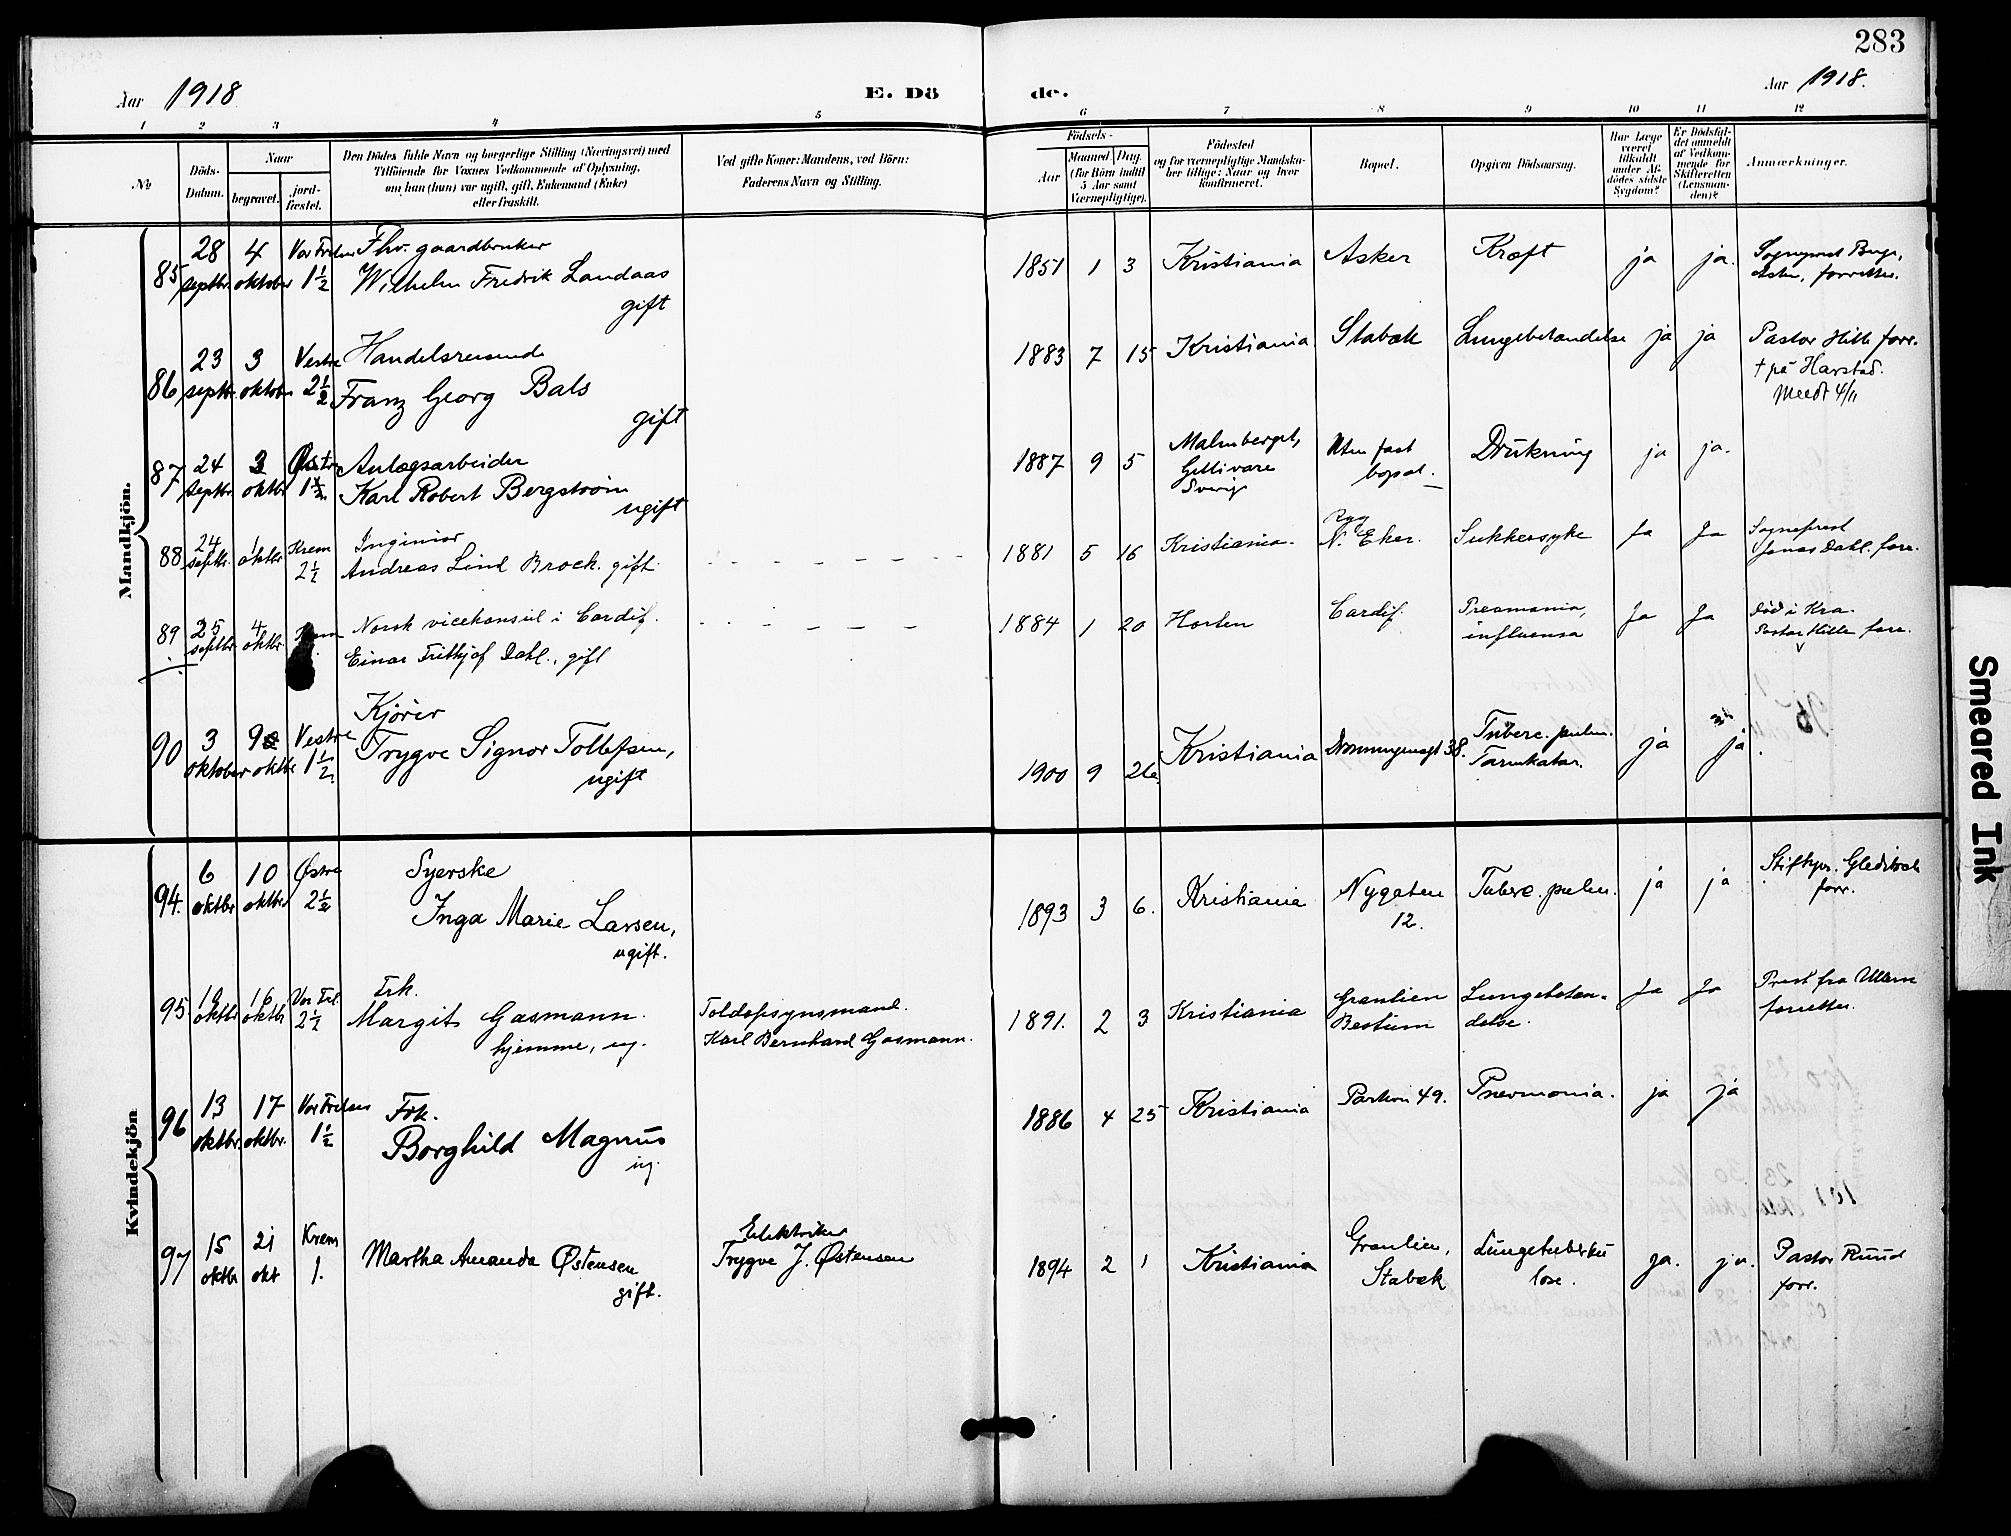 283
Aar 1918
E. Dö
de.
Aar 1918.
1 2 3 4 5 6 7 8 9 10 11 12
No
Döds-
Datum.
Naar
begravet.
jord-
fæstet.
Den Dödes fulde Navn og borgerlige Stilling (Næringsvei) med
Tilföiende for Voxnes Vedkommende af Oplysning,
om han (hun) var ugift, gift, Enkemand (Enke)
eller fraskilt.
Ved gifte Koner: Mandens, ved Börn:
Faderens Navn og Stilling.
Födsels-
Aar
Maaned Dag.
(for Börn indtil
5 Aar samt
Værnepligtige).
Födested
og for værnepligtige Mandska-
ber tillige: Naar og hvor
konfirmeret.
Bopæl.
Opgiven Dödsaarsag.
Har Læge
været
tilkaldt
under Af-
dödes sidste
Sygdom?
Er Dödsfal-
det anmeldt
af Vedkom-
mende for
Skifteretten
(Lensman-
den)?
Anmærkninger.
Mandkjön.
85
28
septbr.
4
oktober
Vor Frelser
1 1/2
Fhv. gaardbruker
Wilhelm Fredrik Landaas
gift
1851 1 3
Kristiania
Asker
Kræft
ja
ja.
Asker, forrettet.
86
23
septbr.
3
oktober
Vestre
2 1/2
Handelsreisende
Franz Georg Bals
gift
1883 7 15
Kristiania
Stabæk
Lungebetændelse
ja
ja
Pastor Hille forr.
† på Harstad.
Meedt 4/11
87
24
septbr.
3
oktbr
Østre
1 1/2
Anlægsarbeider
Karl Robert Bergstrøm
ugift
1887 9 5
Malmberget,
Gellivare
Sverige
Uten fast
bopæl.
Drukning
ja
ja.
88
24
septbr.
1
oktbr
Krem
2 1/2
Ingeniør
Andreas Lind Brock. gift.
1881 5 16
Kristiania.
N. Eker.
Sukkersyke
Ja
Ja
Sogneprest
Jonas Dahl. forr.
89
25
septbr
4
oktbr.
Norsk vicekonsul i Cardif.
Einar Frithjof Dahl., gift
1884 1 20
Horten
Cardif.
influensa
Ja
Ja
Død i Kra.
Pastor Hille forr.
90
3
oktober
9
oktbr
Vestre
1 1/2
Kjører
Trygve Signor Tollefsen,
ugift
1900 9 26
Kristiania
Dronningensgt 38.
Tuberc. pulm.
Tarmkatar.
ja
ja
Kvindekjön
94.
6
oktbr
10
oktbr
Østre
2 1/2
Syerske
Inga Marie Larsen,
ugift.
1893 3 6.
Kristiania
Nygaten
12.
Tuberc. pulm.
ja
ja
Stiftspr. Gleditsch
forr.
95
oktbr
16
oktbr
Vor Frl.
2 1/2
Frk.
Margit Gasmann.
hjemme, ug.
Toldopsynsmand.
Karl Bernhard Gasmann.
1891. 2 3
Kristiania
Granlien
Bestum
Lungebetæn-
delse.
Ja
Ja
Prest fra Ullern
forretter.
96
13
oktbr.
17
oktbr.
Vor Frelser
1 1/2
Frk.
Borghild Magnus
ug.
1886 4 25
Kristiania
Parkvn 49.
Pnevmonia.
ja
ja
97
15
oktbr
21
okt
Krem
1.
Martha Amanda Østensen
gift.
Elektriker
Trygve J. Østensen
1894 2 1
Kristiania
Granlien,
Stabæk
Lungetuberku
lose.
ja.
ja.
Pastor Ruud
forr.
Smeared Ink